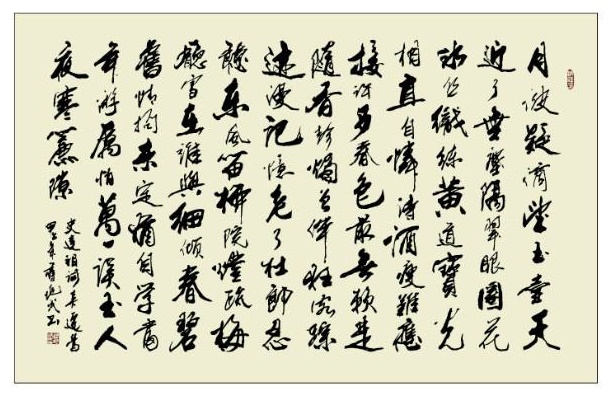 月波疑滴望玉壺天
近了無塵隔翠眼圈花
冰絲織練黃道寶光
相直自憐詩酒瘦難應
接許多春色最無賴是
隨香趁燭曾伴狂客蹤
迹漫記憶老了杜郎忍
聽東風笛柳院燈疏梅
廳雪在誰與細傾春碧
舊情拘未定猶自學當
年游歷怕萬一誤玉人
夜寒簾隙
史達祖詞喜遷鶯
年 書